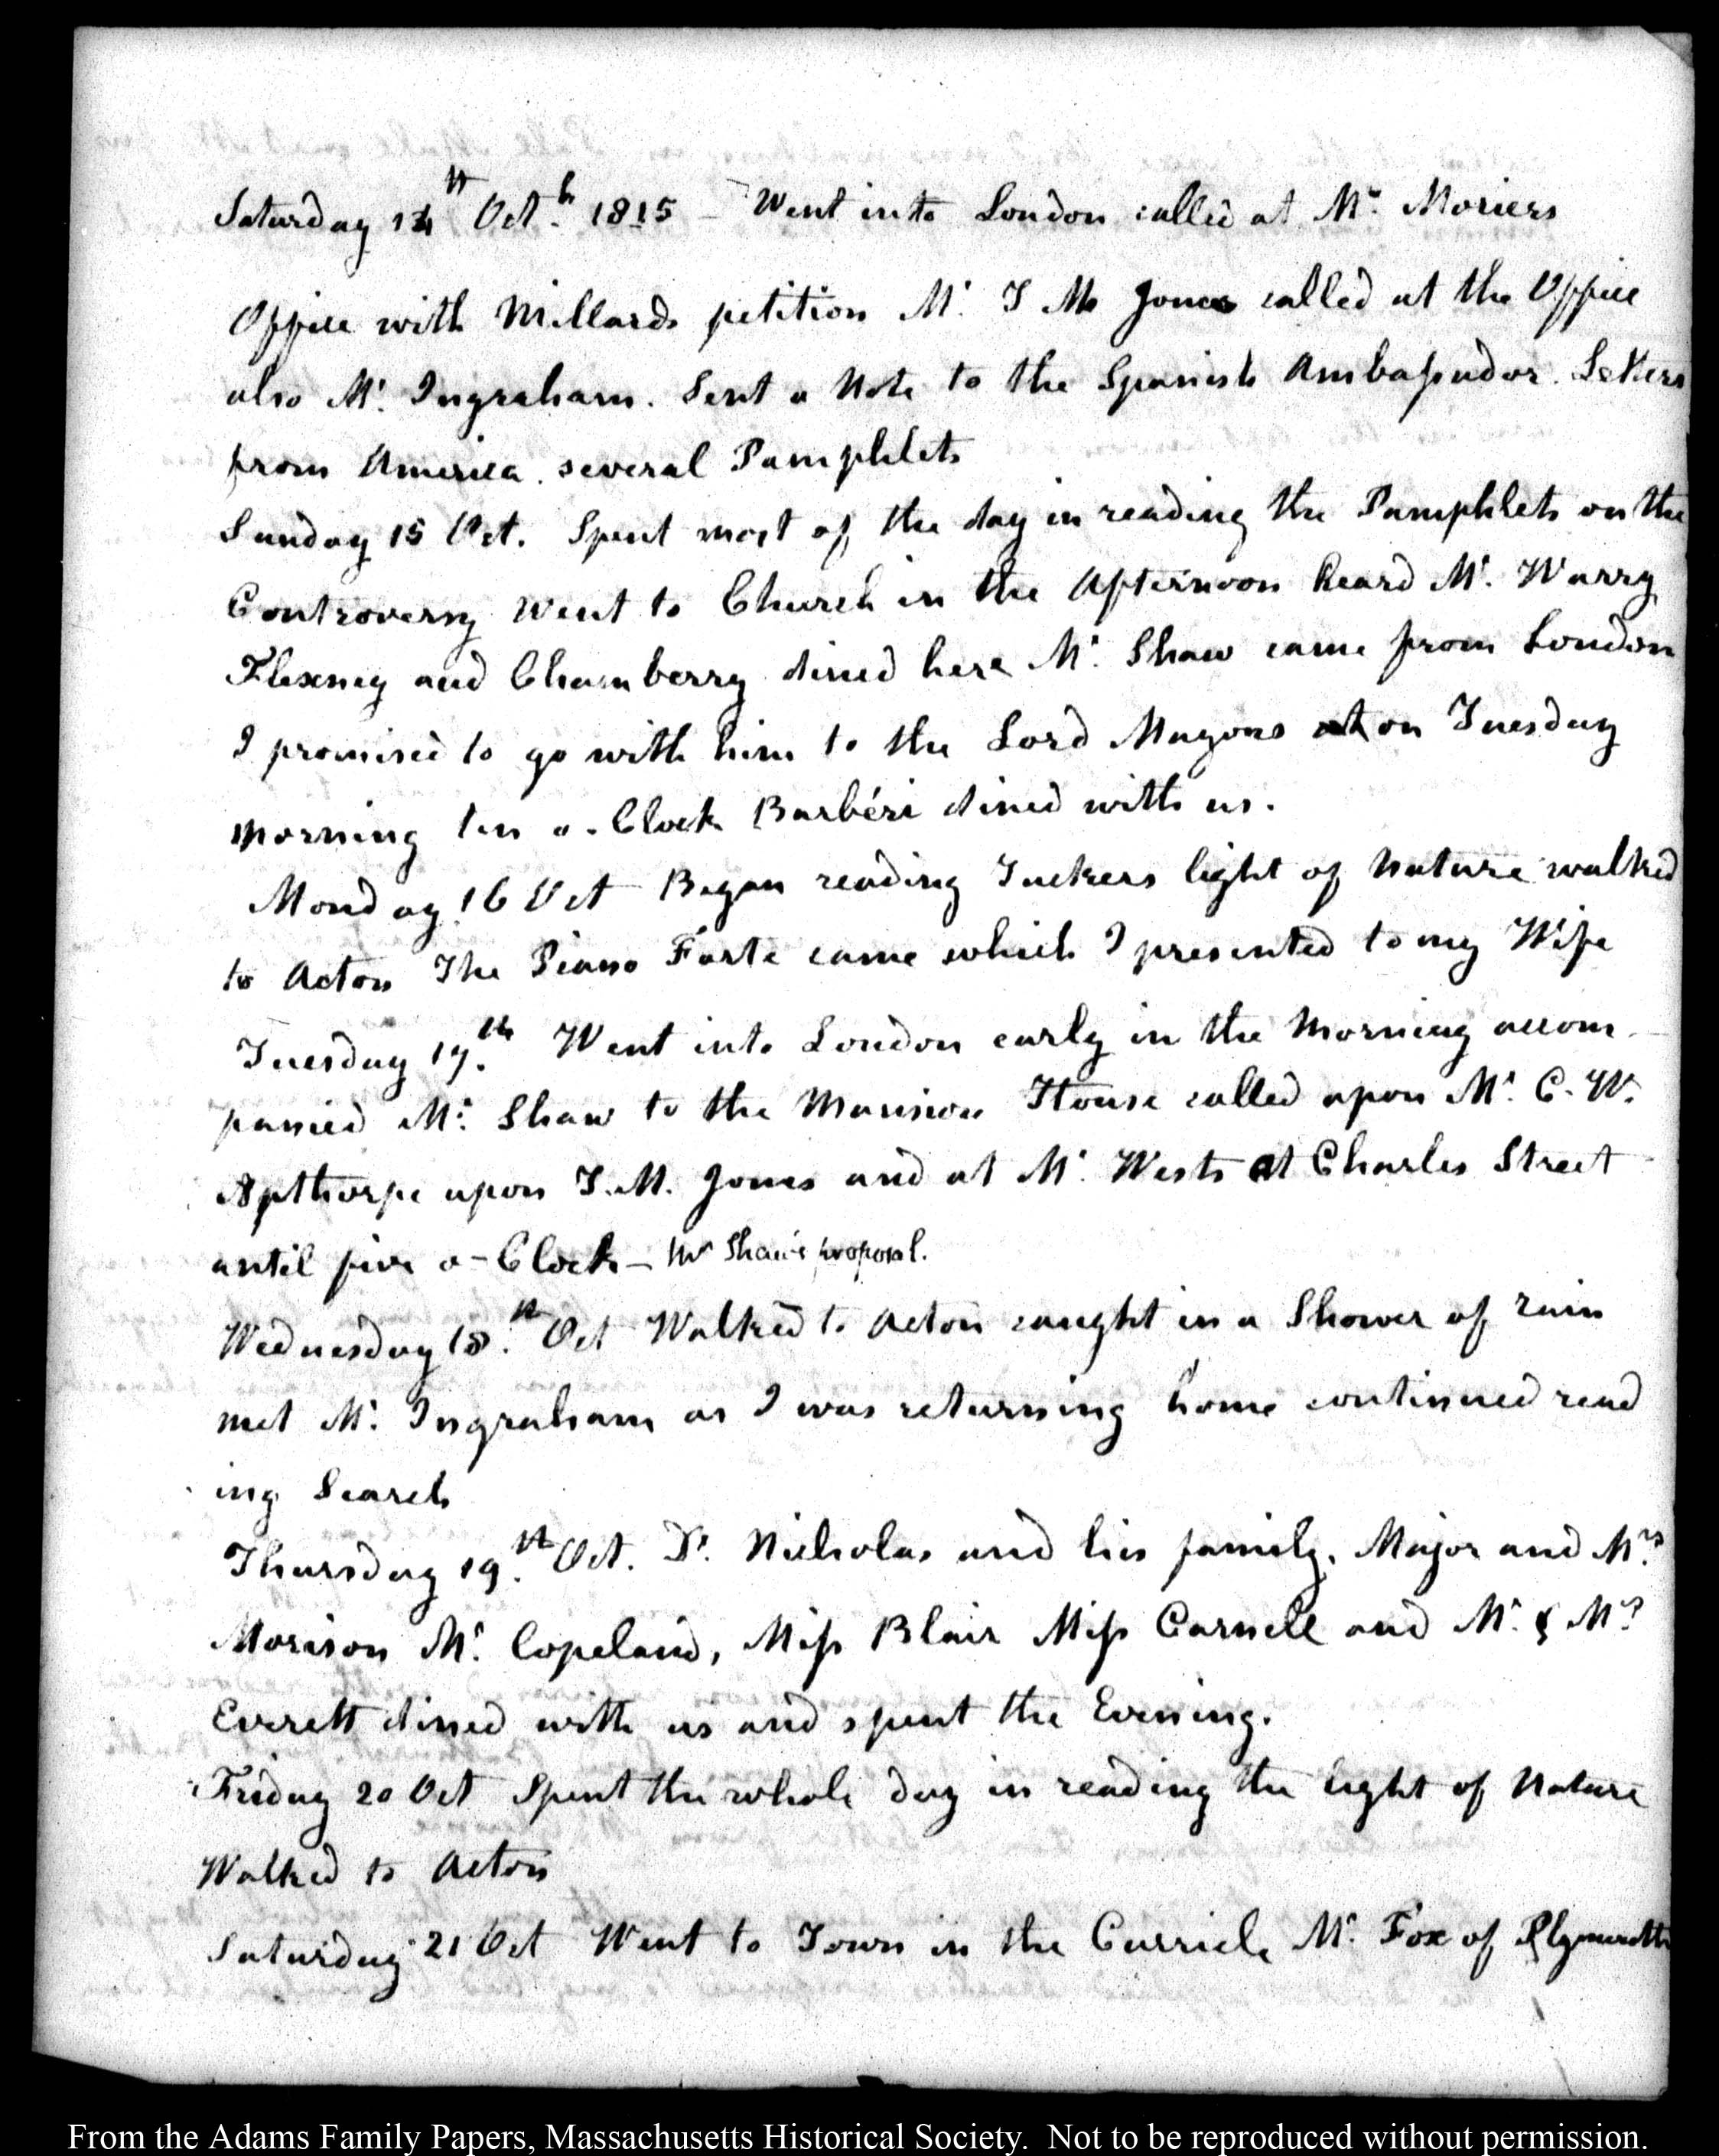 Saturday 14th Octh. 1815 – Went into London called at Mr. Moriers
Office with Millards petition Mr. T M Jones called at the Office
also Mr. Ingraham. Sent a Note to the Spanish Ambassador. Letters
from America. several Pamphlets
Sunday 15 Oct. Spent most of the day in reading the Pamphlets on the
Controversy Went to Church in the Afternoon heard Mr. Warry
Flexney and Chamberry dined here Mr. Shaw came from London
I promised to go with him to the Lord Mayors at on Tuesday
morning ten o-Clock Barbéri dined with us.
Monday 16 Oct Began reading Tuckers light of Nature walked
to Acton The Piano Forte came which I presented to my Wife
Tuesday 17.th Went into London early in the Morning accom-
panied Mr. Shaw to the Mansion House called upon Mr. C. W.
Apthorpe upon T. M. Jones and at Mr. Wests at Charles Street
until five o-Clock – Mr Shaw's proposal.
Wednesday 18.th Oct Walked to Acton caught in a Shower of rain
met Mr. Ingraham as I was returning home continued read
ing Search
Thursday 19.th Oct. Dr. Nicholas and his family, Major and Mrs.
Morison Mr. Copeland, Miss Blair Miss Carnell and Mr. & Mrs.
Everett dined with us and spent the Evening.
Friday 20 Oct Spent the whole day in reading the light of Nature
Walked to Acton
Saturday 21 Oct Went to Town in the Curricle Mr. Fox of Plymouth
From the Adams Family Papers, Massachusetts Historical Society. Not to be reproduced without permission.